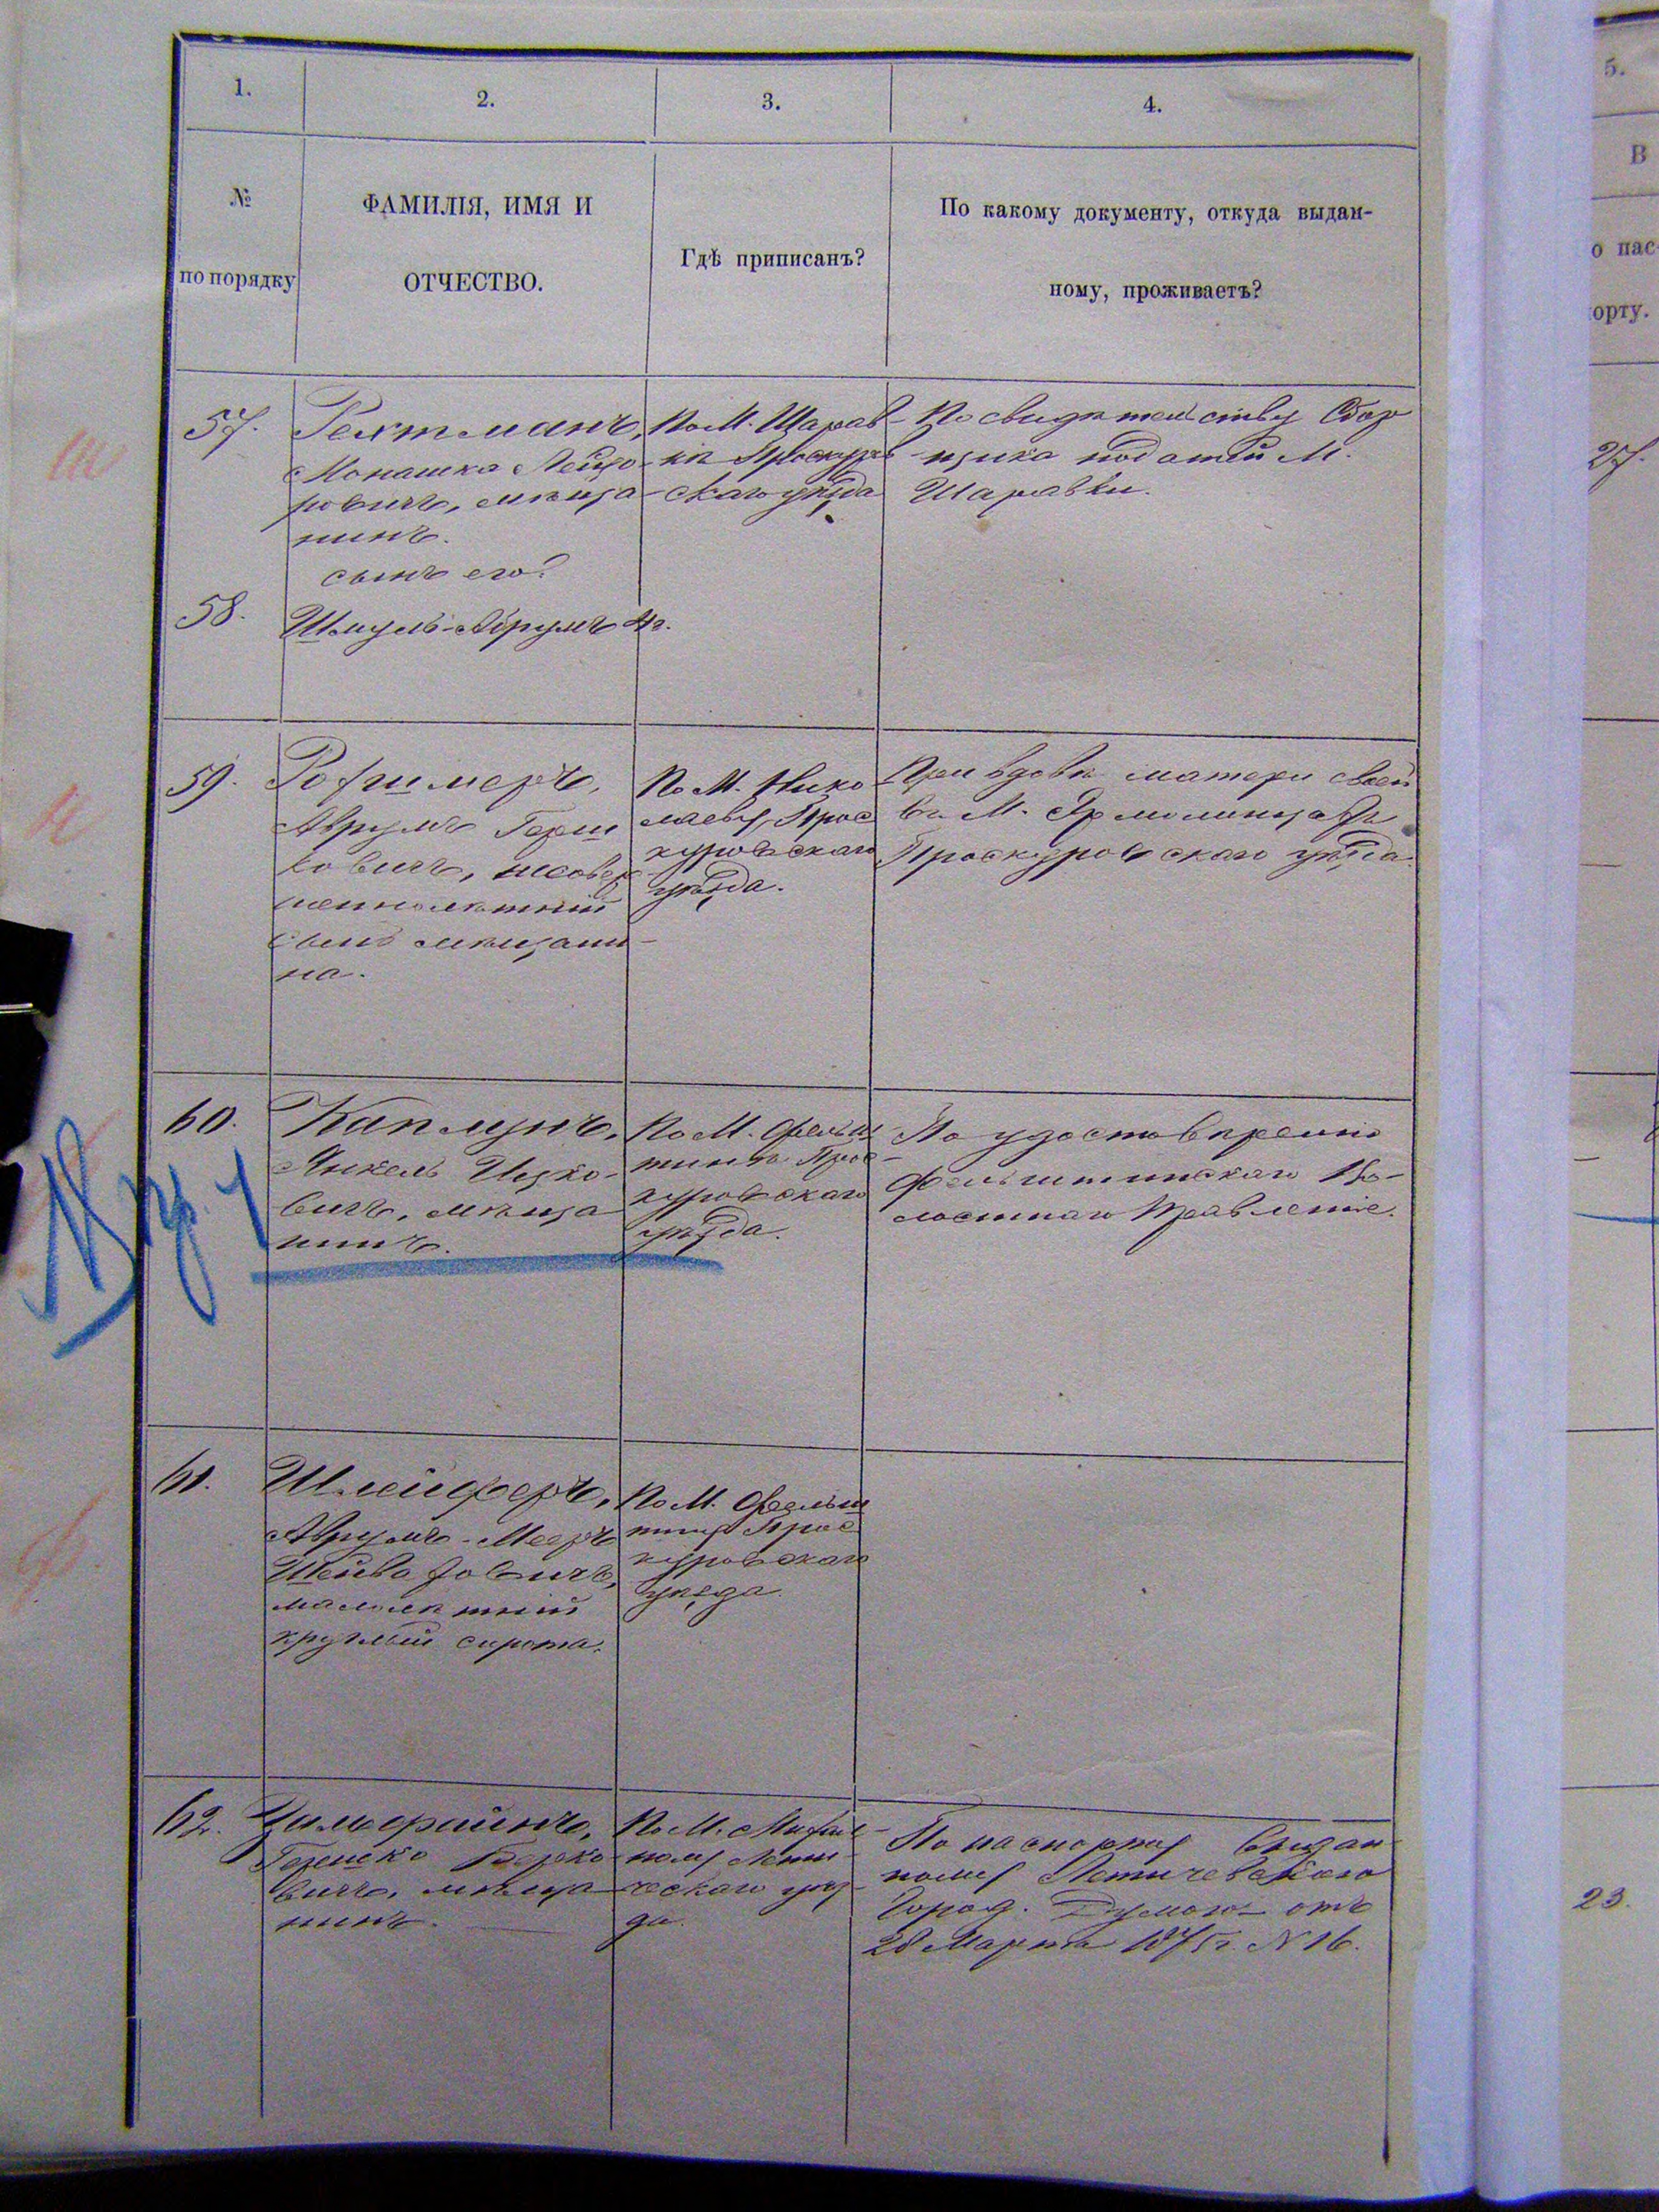 1.
2.
3.
4.
№
по порядку
ФАМИЛІЯ, ИМЯ И
ОТЧЕСТВО.
Гдѣ приписанъ?
По какому документу, откуда выдан-
ному, проживаетъ?
57.
Рехтманъ,
Монашка Лейзо-
ровичъ, мѣща-
нинъ.
сынъ его:
По М. Шарав-
кѣ Проскуров-
скаго уѣзда
По свидѣтельству Сбор
щика податей М.
Шаравки.
58.
Шмуль-Аврумъ 4 г.
59.
Аврумъ Герш
ковичъ, несовер
шеннолѣтній
сынъ мѣщани-
на.
По М. Нико
лаеву, Прос
куровскаго
уѣзда.
При вдовѣ матери своей
въ М. Ярмолинцахъ
Проскуровскаго уѣзда.
60.
Каплунъ,
Янкель Ицко-
вичъ, мѣща
нинъ.
По М. Фельш
тинъ Прос-
куровскаго
уѣзда.
По удостовѣренію
Фельштинскаго Во-
лостнаго Правленіе.
61.
Шлейферъ,
Аврумъ-Мееръ
малолѣтній
круглый сирота.
По М. Фельш
тину Прос
куровскаго
уѣзда.
62.
Гершко Берко-
вичъ, мѣща
нинъ.
По М. Михал-
полю Лети-
ческаго уѣз-
да.
По паспорту выдан-
ному Летичевскою
Город. Думою отъ
28 Марта 1875 г. N 16.
5.
В
о пас-
орту.
27.
23.